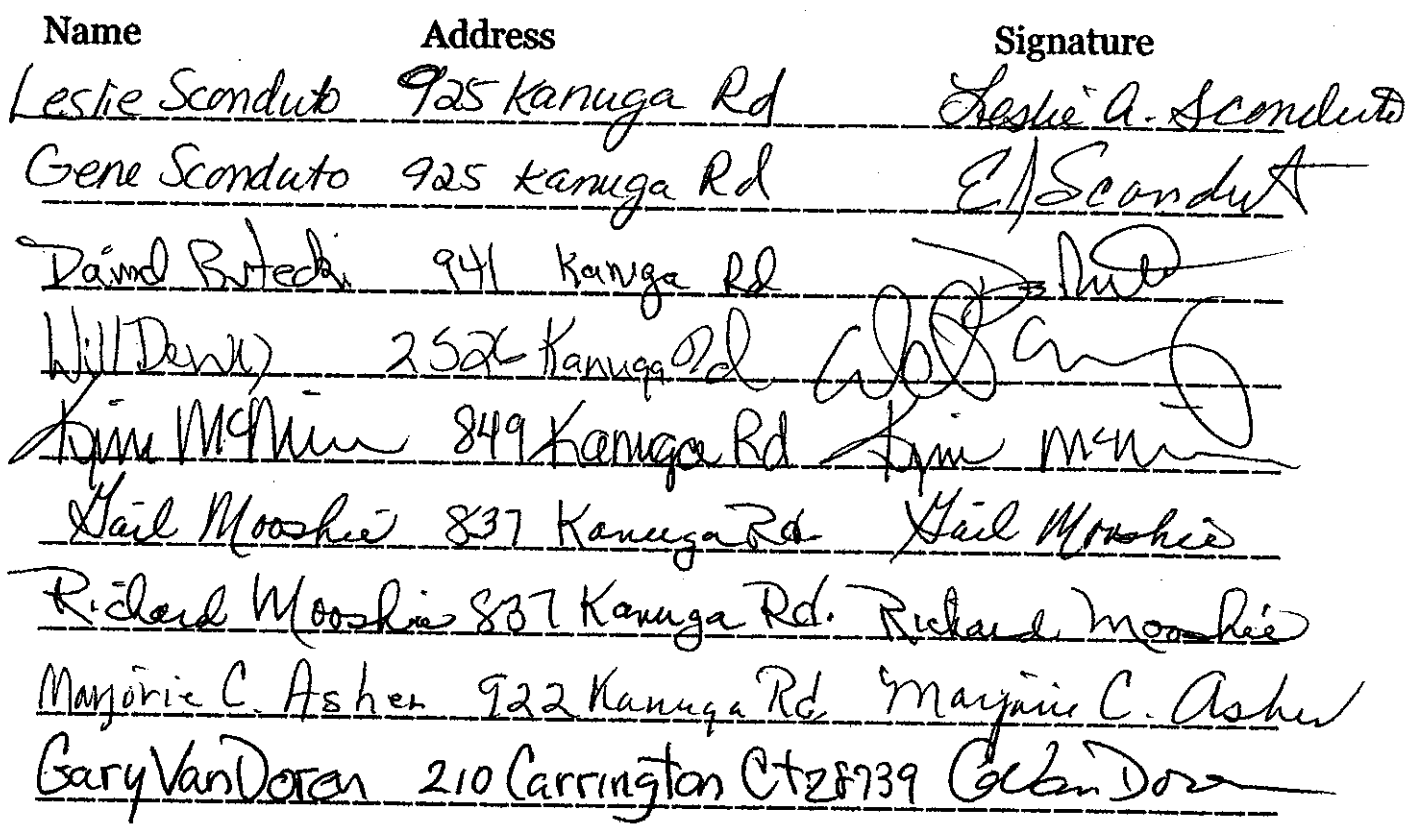 Name Address Signature
Leslie Sconduto 925 Kanuga Rd Leslie A. Sconduto
Gene Sconduto 925 Kanuga Rd EJ Sconduto
David 941 Kanuga Rd
Will 2526 Kanuga Rd
Kim McMinn 849 Kanuga Rd Kim
Gail Mooshie 837 Kanuga Rd. Gail Mooshie
Richard Mooshie 837 Kanuga Rd. Richard Mooshie
Marjorie C. Asher 922 Kanuga Rd. Marjorie C. Asher
Gary Van Doren 210 Carrington Ct 28739 Van Doren